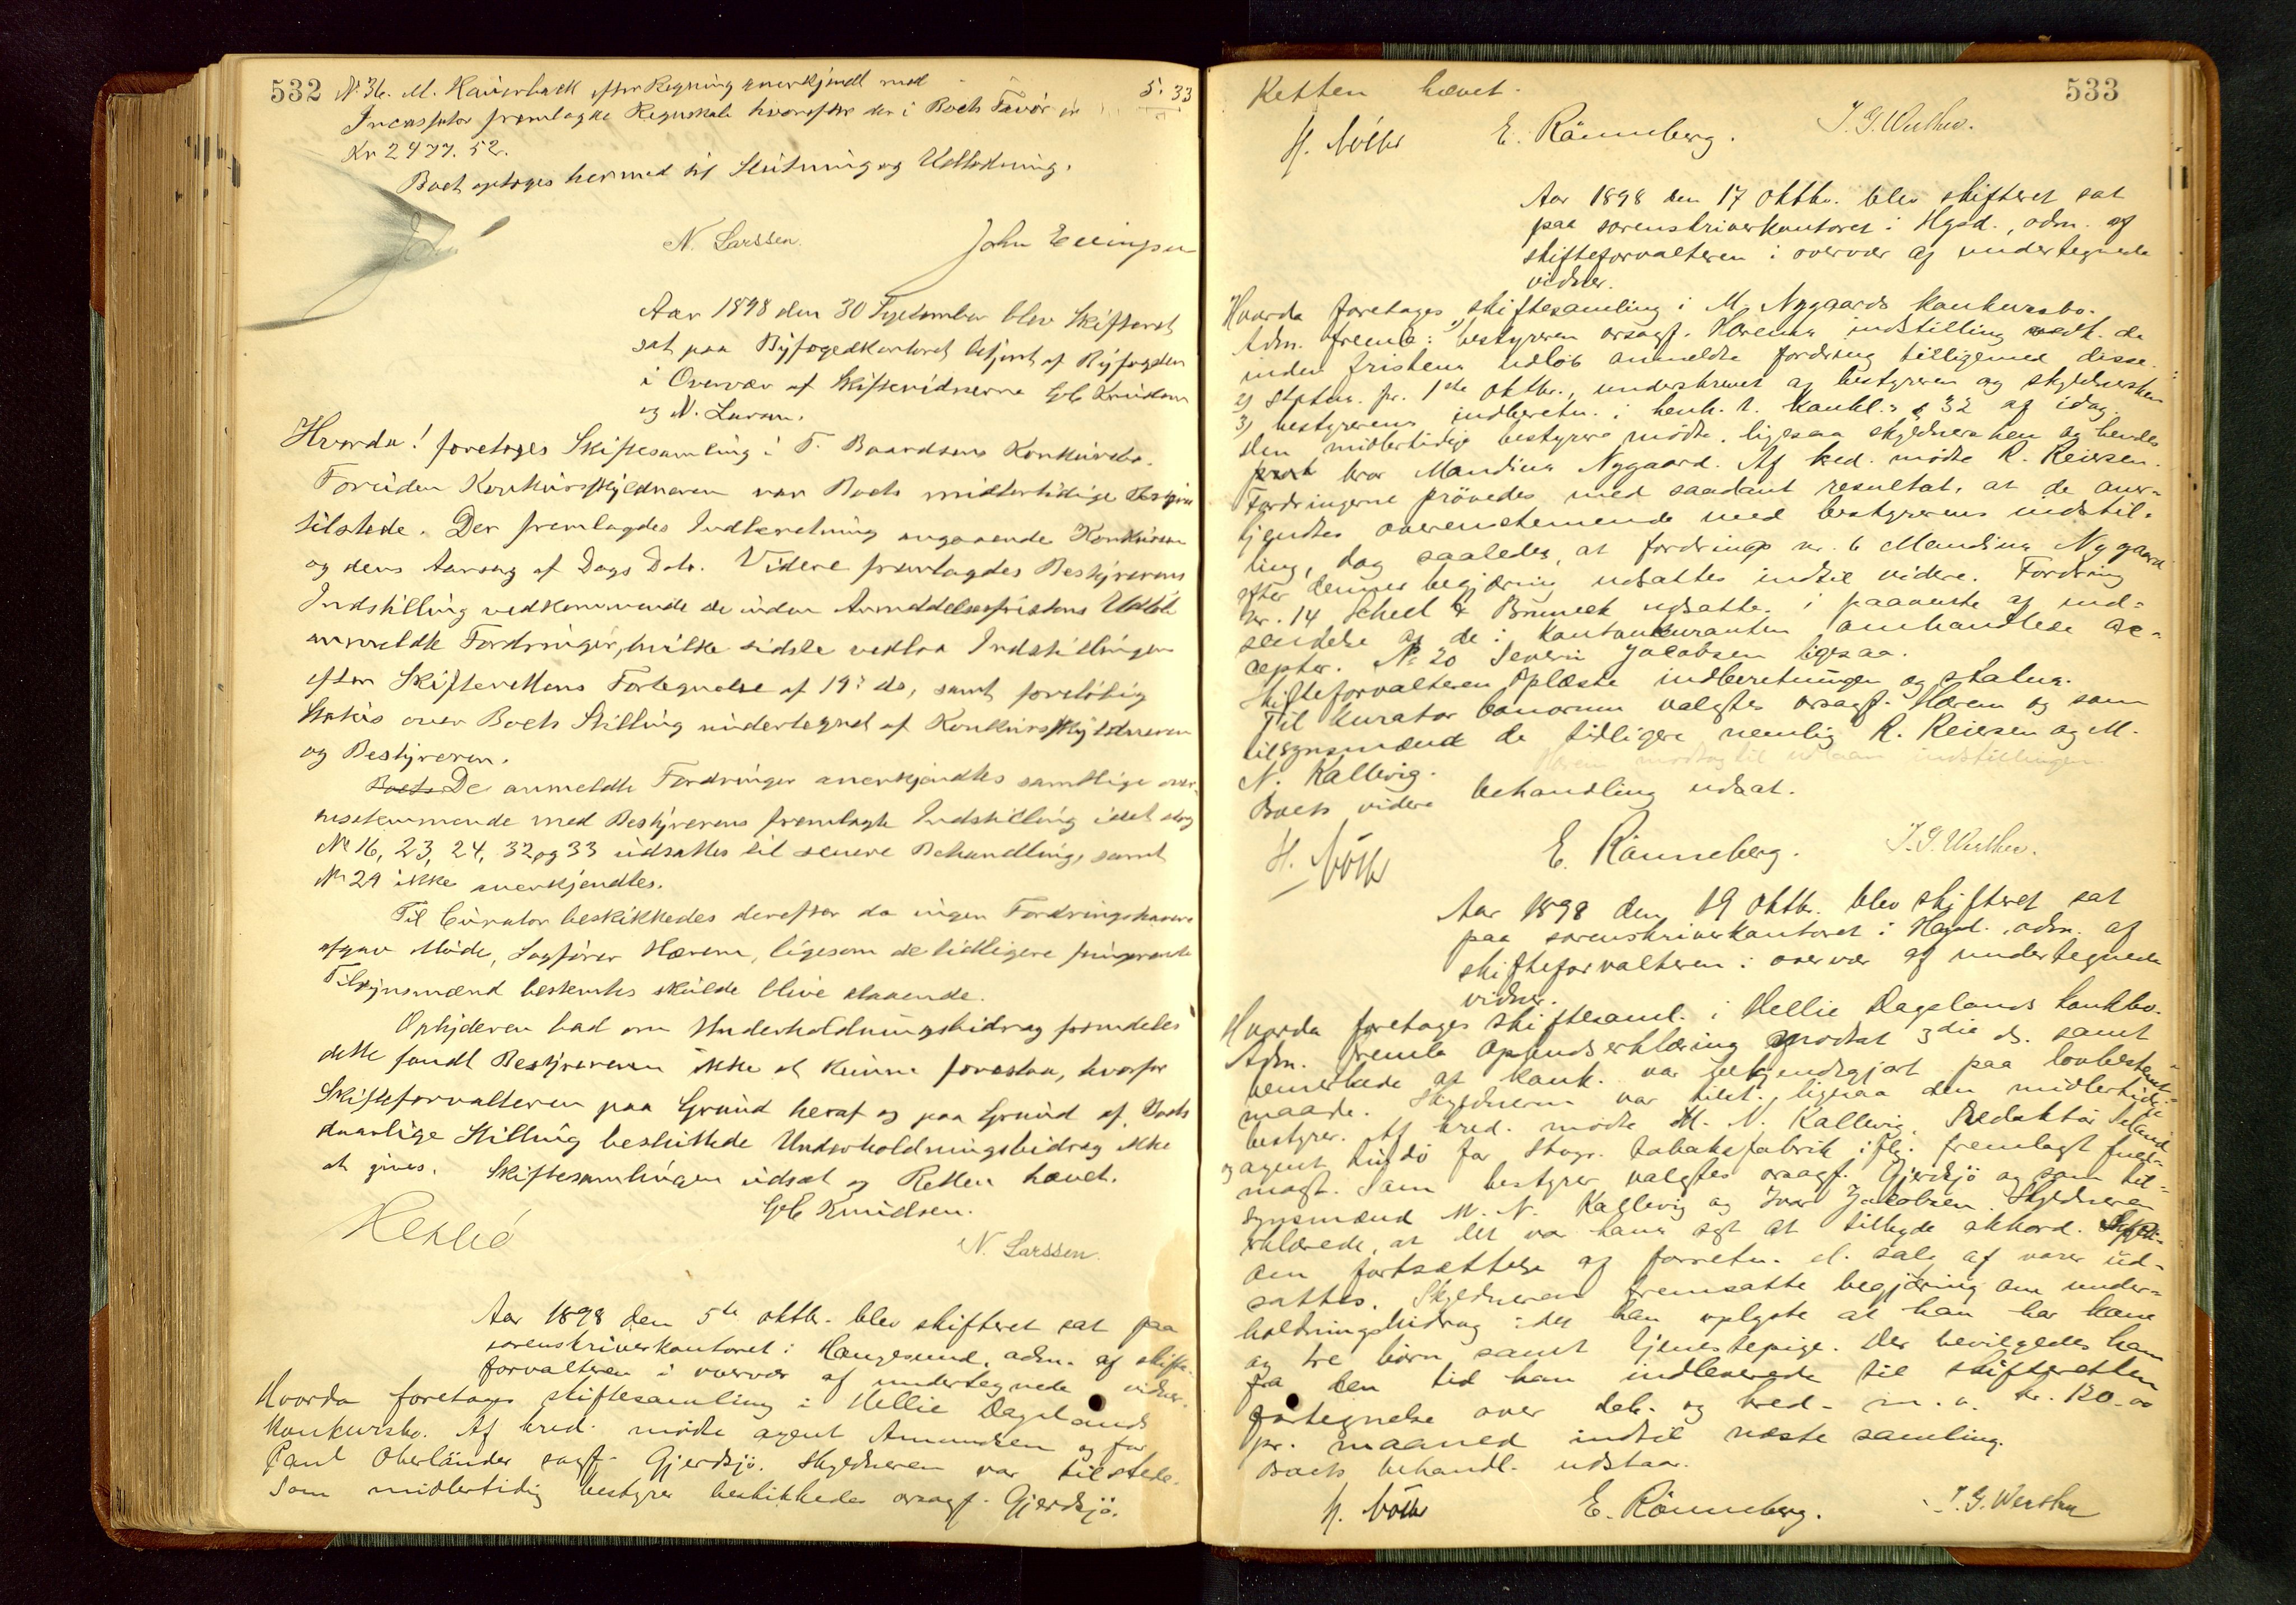 532
N: 36. M. Hauerback efter Regning anerkjendt med 5. 33
Incassator fremlagde Regnskab hvorefter der i Boets Favør er
Kr 2477. 52.
Boet optoges hermed til Slutning og Udlodning.
N. Larssen. John Ellingsen
Aar 1898 den 30 September blev Skifteret
sat paa Byfogedkontoret betjent af Byfogden
i Overvær af Skiftevidnerne Geb Knudsen
og N. Larsen.
Hvorda! foretoges Skiftesamling i T. Baardsens Konkursbo.
Foruden Konkursskyldneren var Boets midlertidige Bestyrer
tilstede. Der fremlagdes Indberetning angaaende Konkursen
og dens Aarsag af Dags Dato. Videre fremlagdes Bestyrerens
Indstilling vedkommende de inden Anmeldelsesfristens Udløb
anmeldte Fordringer, hvilke sidste vedlaa Indstillingen
efter Skifterettens Fortegnelse af 19: ds, samt foreløbig
Status over Boets Stilling undertegnet af Konkursskyldneren
og Bestyreren.
Boets De anmeldte Fordringer anerkjendtes samtlige over-
ensstemmende med Bestyrerens fremlagte Indstilling idet dog
No 16, 23, 24, 32 og 33 udsattes til senere Behandling, samt
No 29 ikke anerkjendtes.
Til Curator beskikkedes derefter da ingen Fordringshavere
afgav Møde, Sagfører Hærem, ligesom de tidligere fungerende
Tilsynsmænd bestemtes skulde blive staaende.
Opbyderen bad om Underholdningsbidrag fremdeles
dette fandt Bestyreren ikke at kunne foreslaa, hvorfor
Skifteforvalteren paa Grund heraf og paa Grund af Boets
daarlige Stilling besluttede Underholdningsbidrag ikke
at gives. Skiftesamlingen udsat og Retten hævet.
Geb Knudsen.
N. Larssen.
Aar 1898 den 5te oktbr. blev skifteret sat paa
sorenskriverkontoret i Haugesund, adm. af skifte-
forvalteren i overvær af undertegnede vidner.
Hvorda foretoges skiftesamling i Mellie Dagslands
konkursbo. Af kred. mødte agent Amundsen og for
Paul Oberländer sagf. Gjerdsjø. Skyldneren var tilstede.
Som midlertidig bestyrer beskikkedes orsagf. Gjerdsjø.
533
Retten hævet.
E. Rönneberg. I. G. Werther.
Aar 1898 den 17 oktbr. blev skifteret sat
paa sorenskriverkontoret i Hgsd., adm. af
skifteforvalteren i overvær af undertegnede
vidner.
Hvorda foretoges skiftesamling i M. Nygaards konkursbo.
Adm. fremla: 1) bestyreren orsagf. Hærems indstilling vedk. de
inden fristens udløb anmeldte fordring tilligemed disse.
2) Status pr. 1ste oktbr., underskrevet af bestyreren og skyldnersken
3) bestyrerens indberetn. i henh. t. konkl.s § 32 af idag.
Den midlertidige bestyrer mødte, ligesaa skyldnersken og hendes
bror Mandius Nygaard. Af kred. mødte R. Reiersen.
Fordringerne prövedes med saadant resultat, at de aner-
kjendtes overensstemende med bestyrerens indstil-
ling, dog saaledes, at fordring nr. 6 Mandius Nygaard
efter dennes begjæring udsattes indtil videre. Fordring
nr. 14 Scheel & Brunech udsatte. i paavente af ind-
sendelse af de i kontokuranten omhandlede ac-
cepter. No 20 Severin Jacobsen ligesaa.
Skifteforvalteren oplæste indberetningen og status.
Til kurator bonorum valgtes orsagf. Hærem og som
tilsynsmænd de tidligere nemlig R. Reiersen og M.
N. Kallevig. Hærem modtog til udlaan indstillingen.
Boets videre behandling udsat.
E. Rönneberg. I. G. Werther.
Aar 1898 den 19 oktbr. blev skifteret sat
paa sorenskriverkontoret i Hgsd., adm. af
skifteforvalteren i overvær af undertegnede
vidner.
Hvorda foretoges skiftesaml. i Mellie Dagslands konkbo.
Adm. fremla opbudserklæring modtat 3die ds. samt
bemerkede at konk. var bekjendtgjort paa lovbestemt
maade. Skyldneren var tilst. ligesaa den midlertidige
bestyrer. Af kred. mødte M. N. Kallevig, Redaktør
og agent for Stavgr. tobaksfabrik ifl. fremlagt fuld-
magt. Som bestyrer valgtes orsagf. Gjerdsjö og som til-
synsmænd M. N. Kallevig og Ivar Jacobsen. Skyldneren
erklærede, at det var hans agt at tilbyde akkord.
om fortsættelse af forretn. el. salg af varer ud-
sattes. Skyldneren fremsatte begjæring om under-
holdningsbidrag idet han oplyste at han har kone
og tre börn samt tjenestepige. Der bevilgedes ham
fra den tid han indleverede til skifteretten
fortegnelse over deb. og kred. m. v. kr. 120.00
pr. maaned indtil næste samling.
Boets behandl. udstaar.
E. Rönneberg. I. G. Werther